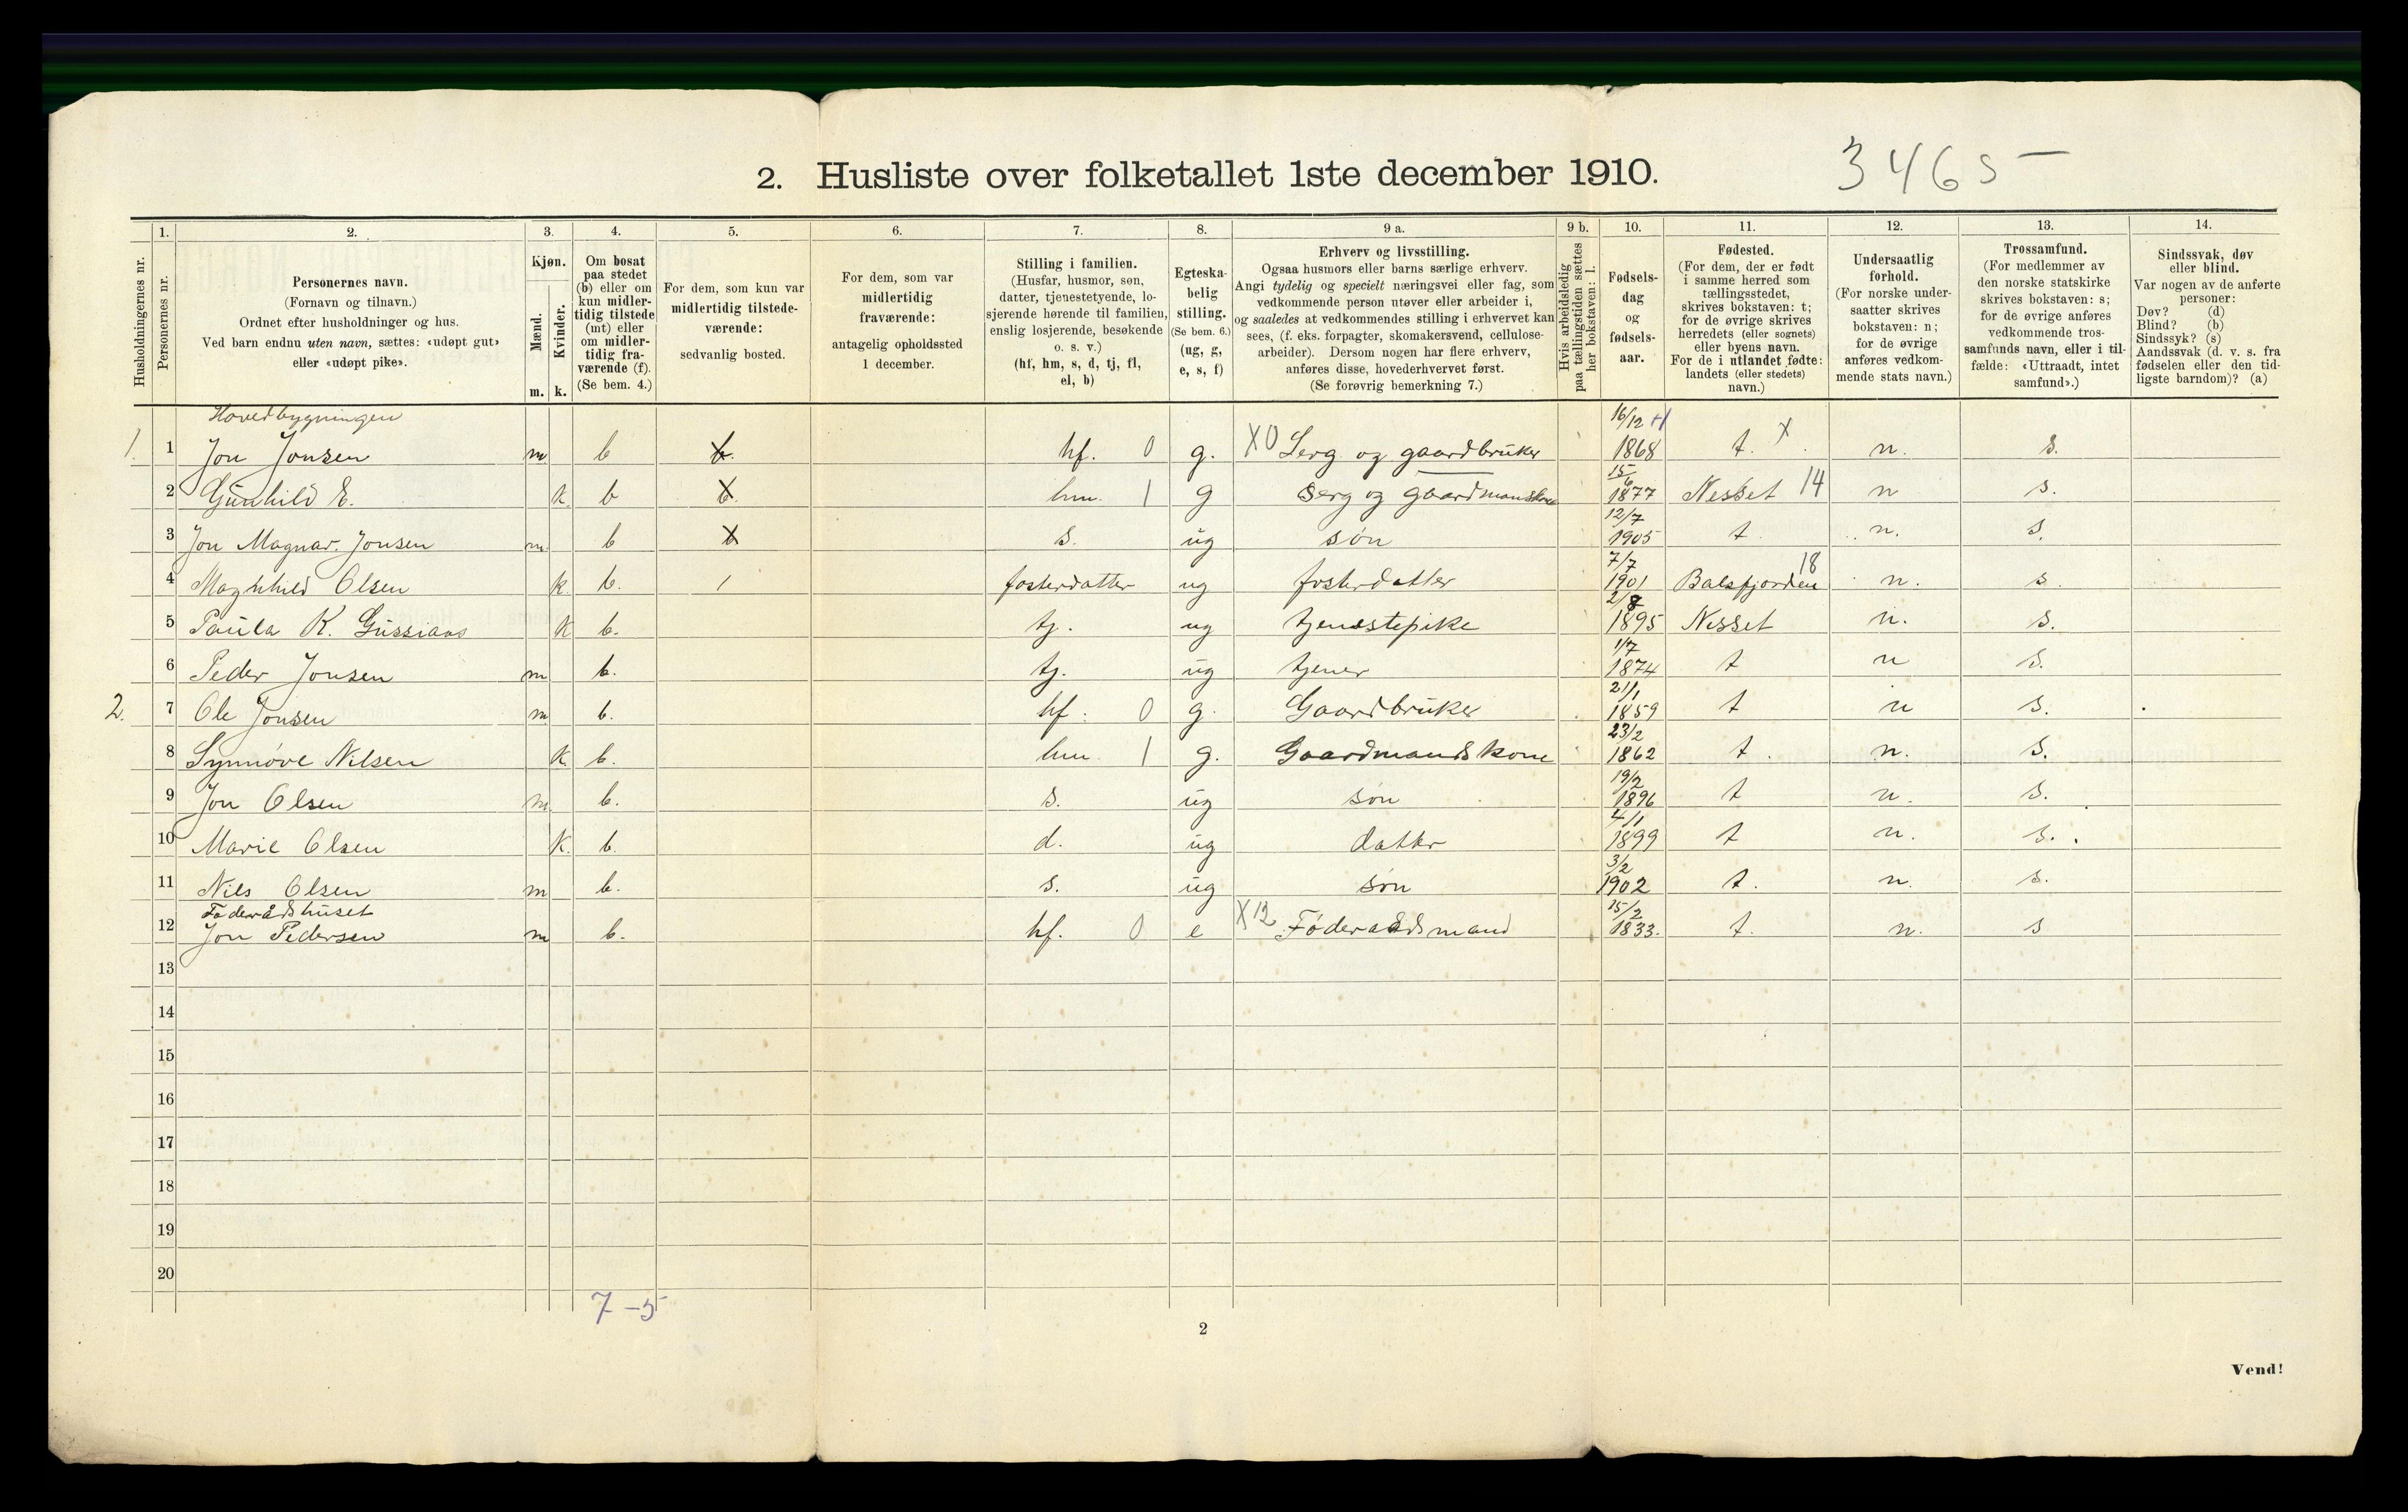 2. Husliste over folketallet 1ste december 1910.
3465
Husholdningernes nr.
1.
Personernes nr.
2.
Personernes navn.
(Fornavn og tilnavn.)
Ordnet efter husholdninger og hus.
Ved barn endnu uten navn, sættes: «udøpt gut»
eller «udøpt pike».
3.
Kjøn.
Mænd.
Kvinder.
m. k.
4.
Om bosat
paa stedet
(b) eller om
kun midler-
tidig tilstede
(mt) eller
om midler-
tidig fra-
værende (f).
(Se bem. 4.)
5.
For dem, som kun var
midlertidig tilstede-
værende:
sedvanlig bosted.
6.
For dem, som var
midlertidig
fraværende:
antagelig opholdssted
1 december.
7.
Stilling i familien.
(Husfar, husmor, søn,
datter, tjenestetyende, lo-
sjerende hørende til familien,
enslig losjerende, besøkende
o. s. v.)
(hf, hm, s, d, tj, fl,
el, b)
8.
Egteska-
belig
stilling.
(Se bem. 6.)
(ug, g,
e, s, f)
9 a.
Erhverv og livsstilling.
Ogsaa husmors eller barns særlige erhverv.
Angi tydelig og specielt næringsvei eller fag, som
vedkommende person utøver eller arbeider i,
og saaledes at vedkommendes stilling i erhvervet kan
sees, (f. eks. forpagter, skomakersvend, cellulose-
arbeider). Dersom nogen har flere erhverv,
anføres disse, hovederhvervet først.
(Se forøvrig bemerkning 7.)
9 b.
Hvis arbeidsledig
paa tællingstiden sættes
her bokstaven: l.
10.
Fødsels-
dag
og
fødsels-
aar.
11.
Fødested.
(For dem, der er født
i samme herred som
tællingsstedet,
skrives bokstaven: t;
for de øvrige skrives
herredets (eller sognets)
eller byens navn.
For de i utlandet fødte:
landets (eller stedets)
navn.)
12.
Undersaatlig
forhold.
(For norske under-
saatter skrives
bokstaven: n;
for de øvrige
anføres vedkom-
mende stats navn.)
13.
Trossamfund.
(For medlemmer av
den norske statskirke
skrives bokstaven: s;
for de øvrige anføres
vedkommende tros-
samfunds navn, eller i til-
fælde: «Uttraadt, intet
samfund».)
14.
Sindssvak, døv
eller blind.
Var nogen av de anførte
personer:
Døv? (d)
Blind? (b)
Sindssyk? (s)
Aandssvak (d. v. s. fra
fødselen eller den tid-
ligste barndom)? (a)
Hovedbygningen
1. 1 Jon Jonsen m b b. hf. 0 g. X0 Serg og gaardbruker 16/12 1868 t. X n. s.
2 Gunhild E. k b b. hm. 1 g Serg og gaardmanskone 15/6 1877 Nesset 14 n s.
3 Jon Magnar. Jonsen m b b s. ug søn 12/7 1905 t n. s.
4 Maghhild Olsen k. b. fosterdatter ug fosterdatter 7/7 1901 Balsfjorden 18 n. s.
5 Paula K. k b. tj. ug tjenestepike 2/8 1895 Nesset n. s.
6 Peder Jonsen m b. tj. ug tjener 1/7 1874 t n s.
2. 7 Ole Jonsen m b. hf. 0 g. Gaardbruker 21/1 1859 t n s.
8 Synnøve Nilsen k b. hm 1 g. Gaardmandskone 23/2 1862 t. n. s.
9 Jon Olsen m. b. s. ug søn 19/2 1896 t n. s.
10 Marie Olsen k. b. d. ug datter 4/1 1899 t n. s.
11 Nils Olsen m b. s. ug søn 3/2 1902 t. n. s.
Føderådshuset
12 Jon Pedersen m b. hf. 0 e X12 Føderaadsmand 15/2 1833. t. n. s
13
14
15
16
17
18
19
20
7-5
2
Vend!